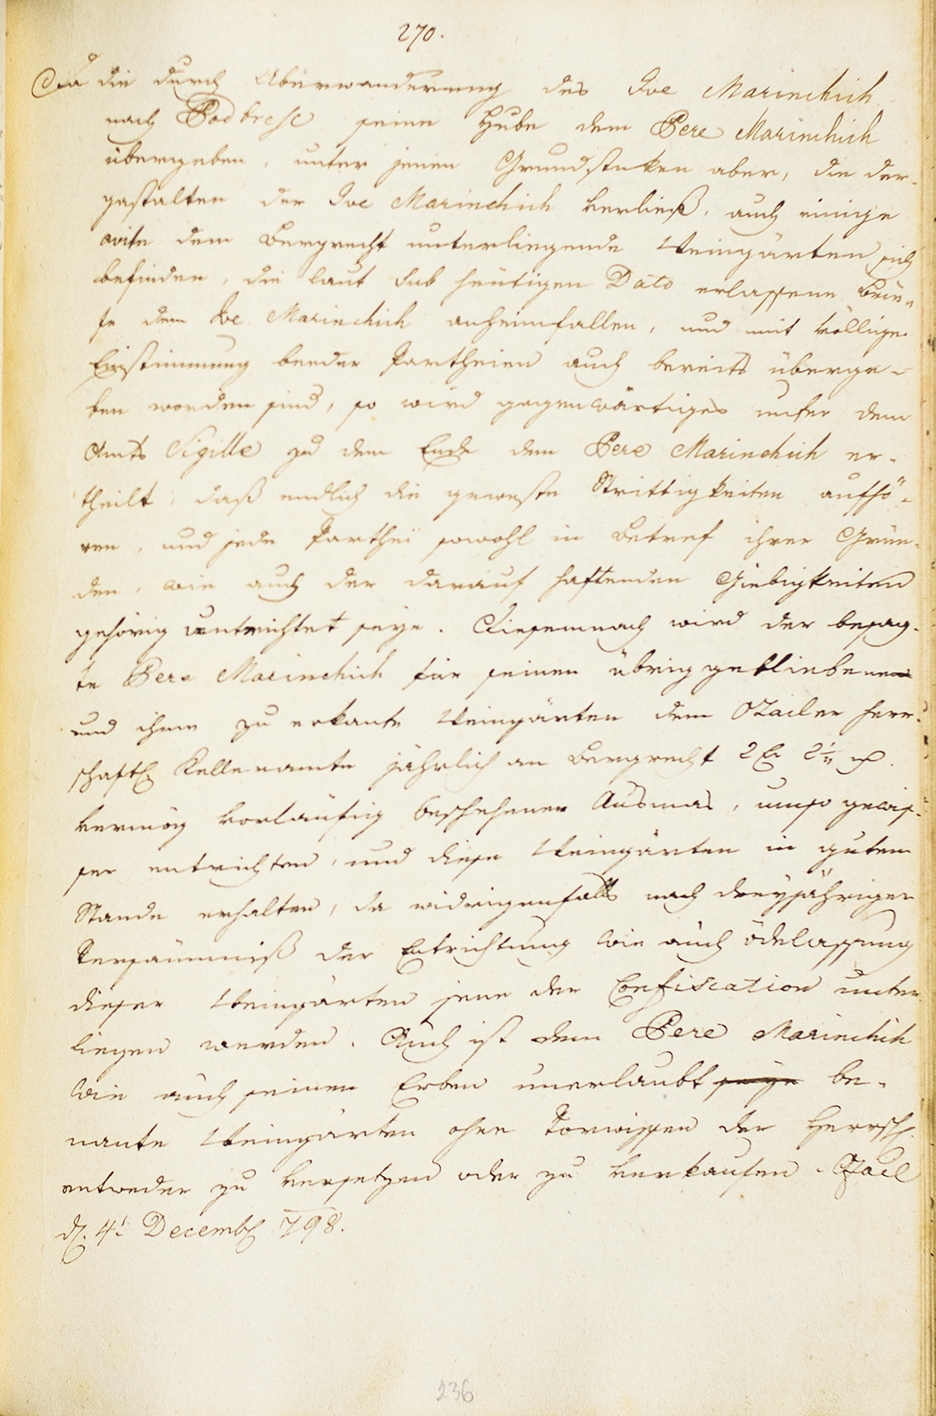 270.
Da die durch Überwanderung des Ive Marinchich
nach Podbresie seine Hube dem Pere Marinchich
übergeben, unter jenen Grundstuken aber, die der-
gestalten der Ive Marinchich verließ, auch einige
dem Bergrecht unterliegende Weingärten sich
befinden, die laut sub heutigen Dato erlassene
dem Ive Marinchich anheimfallen, und mit völliger
Einstimmung beeder Partheien auch bereits überge-
ben worden sind, so wird gegenwärtiges unter dem
Amts Sigille zu dem Ende dem Pere Marinchich er-
theilt, daß endlich die geweste Strittigkeiten aufhö-
ren, und jede Parthei sowohl in Betref ihrer Grün-
den, wie auch der darauf haftenden Giebigkeiten
gehörig unterrichtet seye. Diesemnach wird der besag-
te Pere Marinchich für seinen übrig gebliebenen
und ihme zu erkante Weingärten dem Ozailer herr-
schaftl Kelleramte jährlich an Bergrecht 2
vermög vorläufig beschehener Ausmas, umso gewis-
ser entrichten, und diese Weingärten in gutem
Stande erhalten, da widrigenfalls nach dreyjähriger
Versäumniß der Entrichtung wie auch ödelassung
dieser Weingärten jene der Confiscation unter
liegen werden. Auch ist dem Pere Marinchich
wie auch seinen Erben unerlaubt seye be-
nante Weingärten ohne Vorwissen der Herrsch.
entweder zu versetzen oder zu verkaufen. Ozail
d. 4t Decemb 798.
236